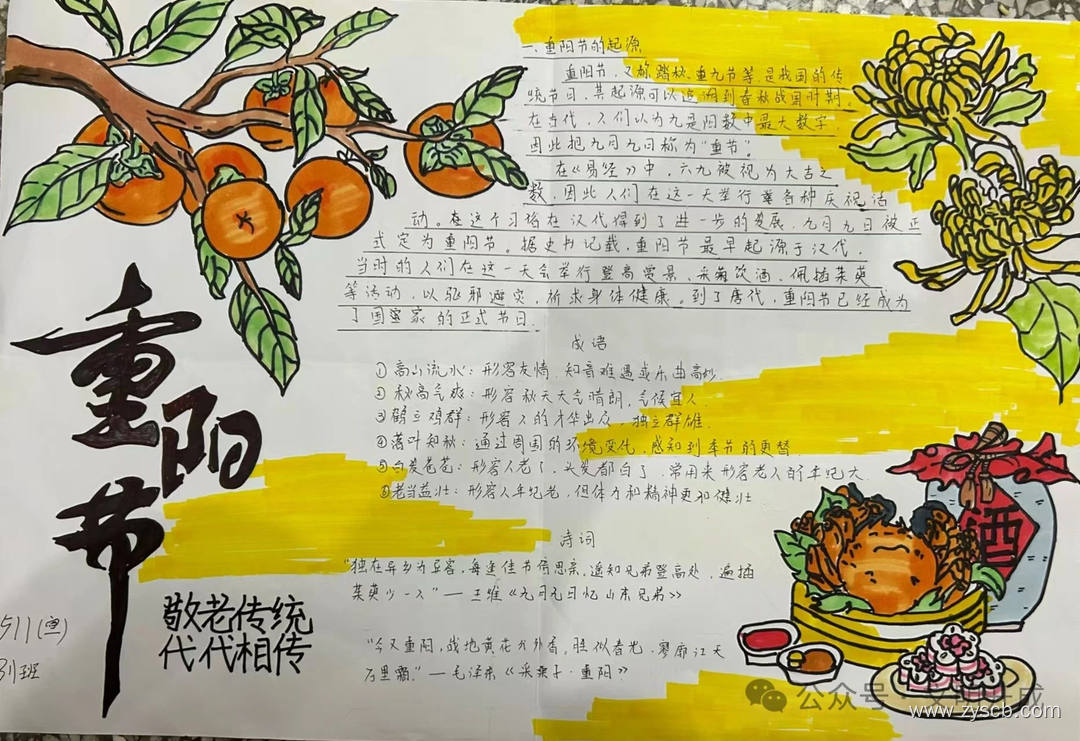 一、重阳节的起源
重阳节，又称踏秋、重九节等是我国的传
统节日，其起源可以追溯到春秋战国时期。
在古代，人们认为九是阳数中最大数字，
因此把九月九日称为“重节”。
在《易经》中，六九被视为大吉之
数，因此人们在这一天举行各种庆祝活
动。在这个习俗在汉代得到了进一步的发展，九月九日被正
式定为重阳节。据史书记载，重阳节最早起源于汉代，
当时的人们在这一天会举行登高赏景、采菊饮酒、佩插茱萸
等活动，以驱邪避灾，祈求身体健康。到了唐代，重阳节已经成为
了国家的正式节日。
成语
①高山流水：形容友情，知音难遇或乐曲高妙。
②秋高气爽：形容秋天天气晴朗，气候宜人
③鹤立鸡群：形容人的才华出众，独立群雄.
④落叶知秋：通过周围的环境变化，感知到季节的更替
⑤白发苍苍：形容人老了，头发都白了，常用来形容老人的年纪大
⑥老当益壮：形容人年纪老，但体力和精神更加健壮
诗词
“独在异乡为异客，每逢佳节倍思亲。遥知兄弟登高处，遍插
茱萸少一人”—王维《九月九日忆山东兄弟》
“今又重阳，战地黄花分外香。胜似春光，寥廓江天
万里霜”—毛泽东《采桑子·重阳》
重阳节
敬老传统
代代相传
511(
班
酒
公众号
www.zyscb.com